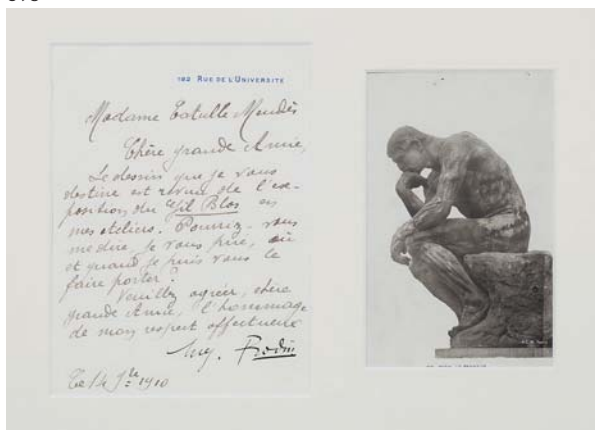 182 RUE DE L'UNIVERSITE
Madame Catulle Mendès
Chère grande Amie,
Le dessin que je vous
destine est revenu de l'ex-
position du Gil Blas en
mes ateliers. Pourriez-vous
me dire, je vous prie, où
et quand je puis vous le
faire porter?
Veuillez agréer, chère
grande Amie, l'hommage
de mon respect affectueux
Aug. Rodin
Le 14 Jlle 1910